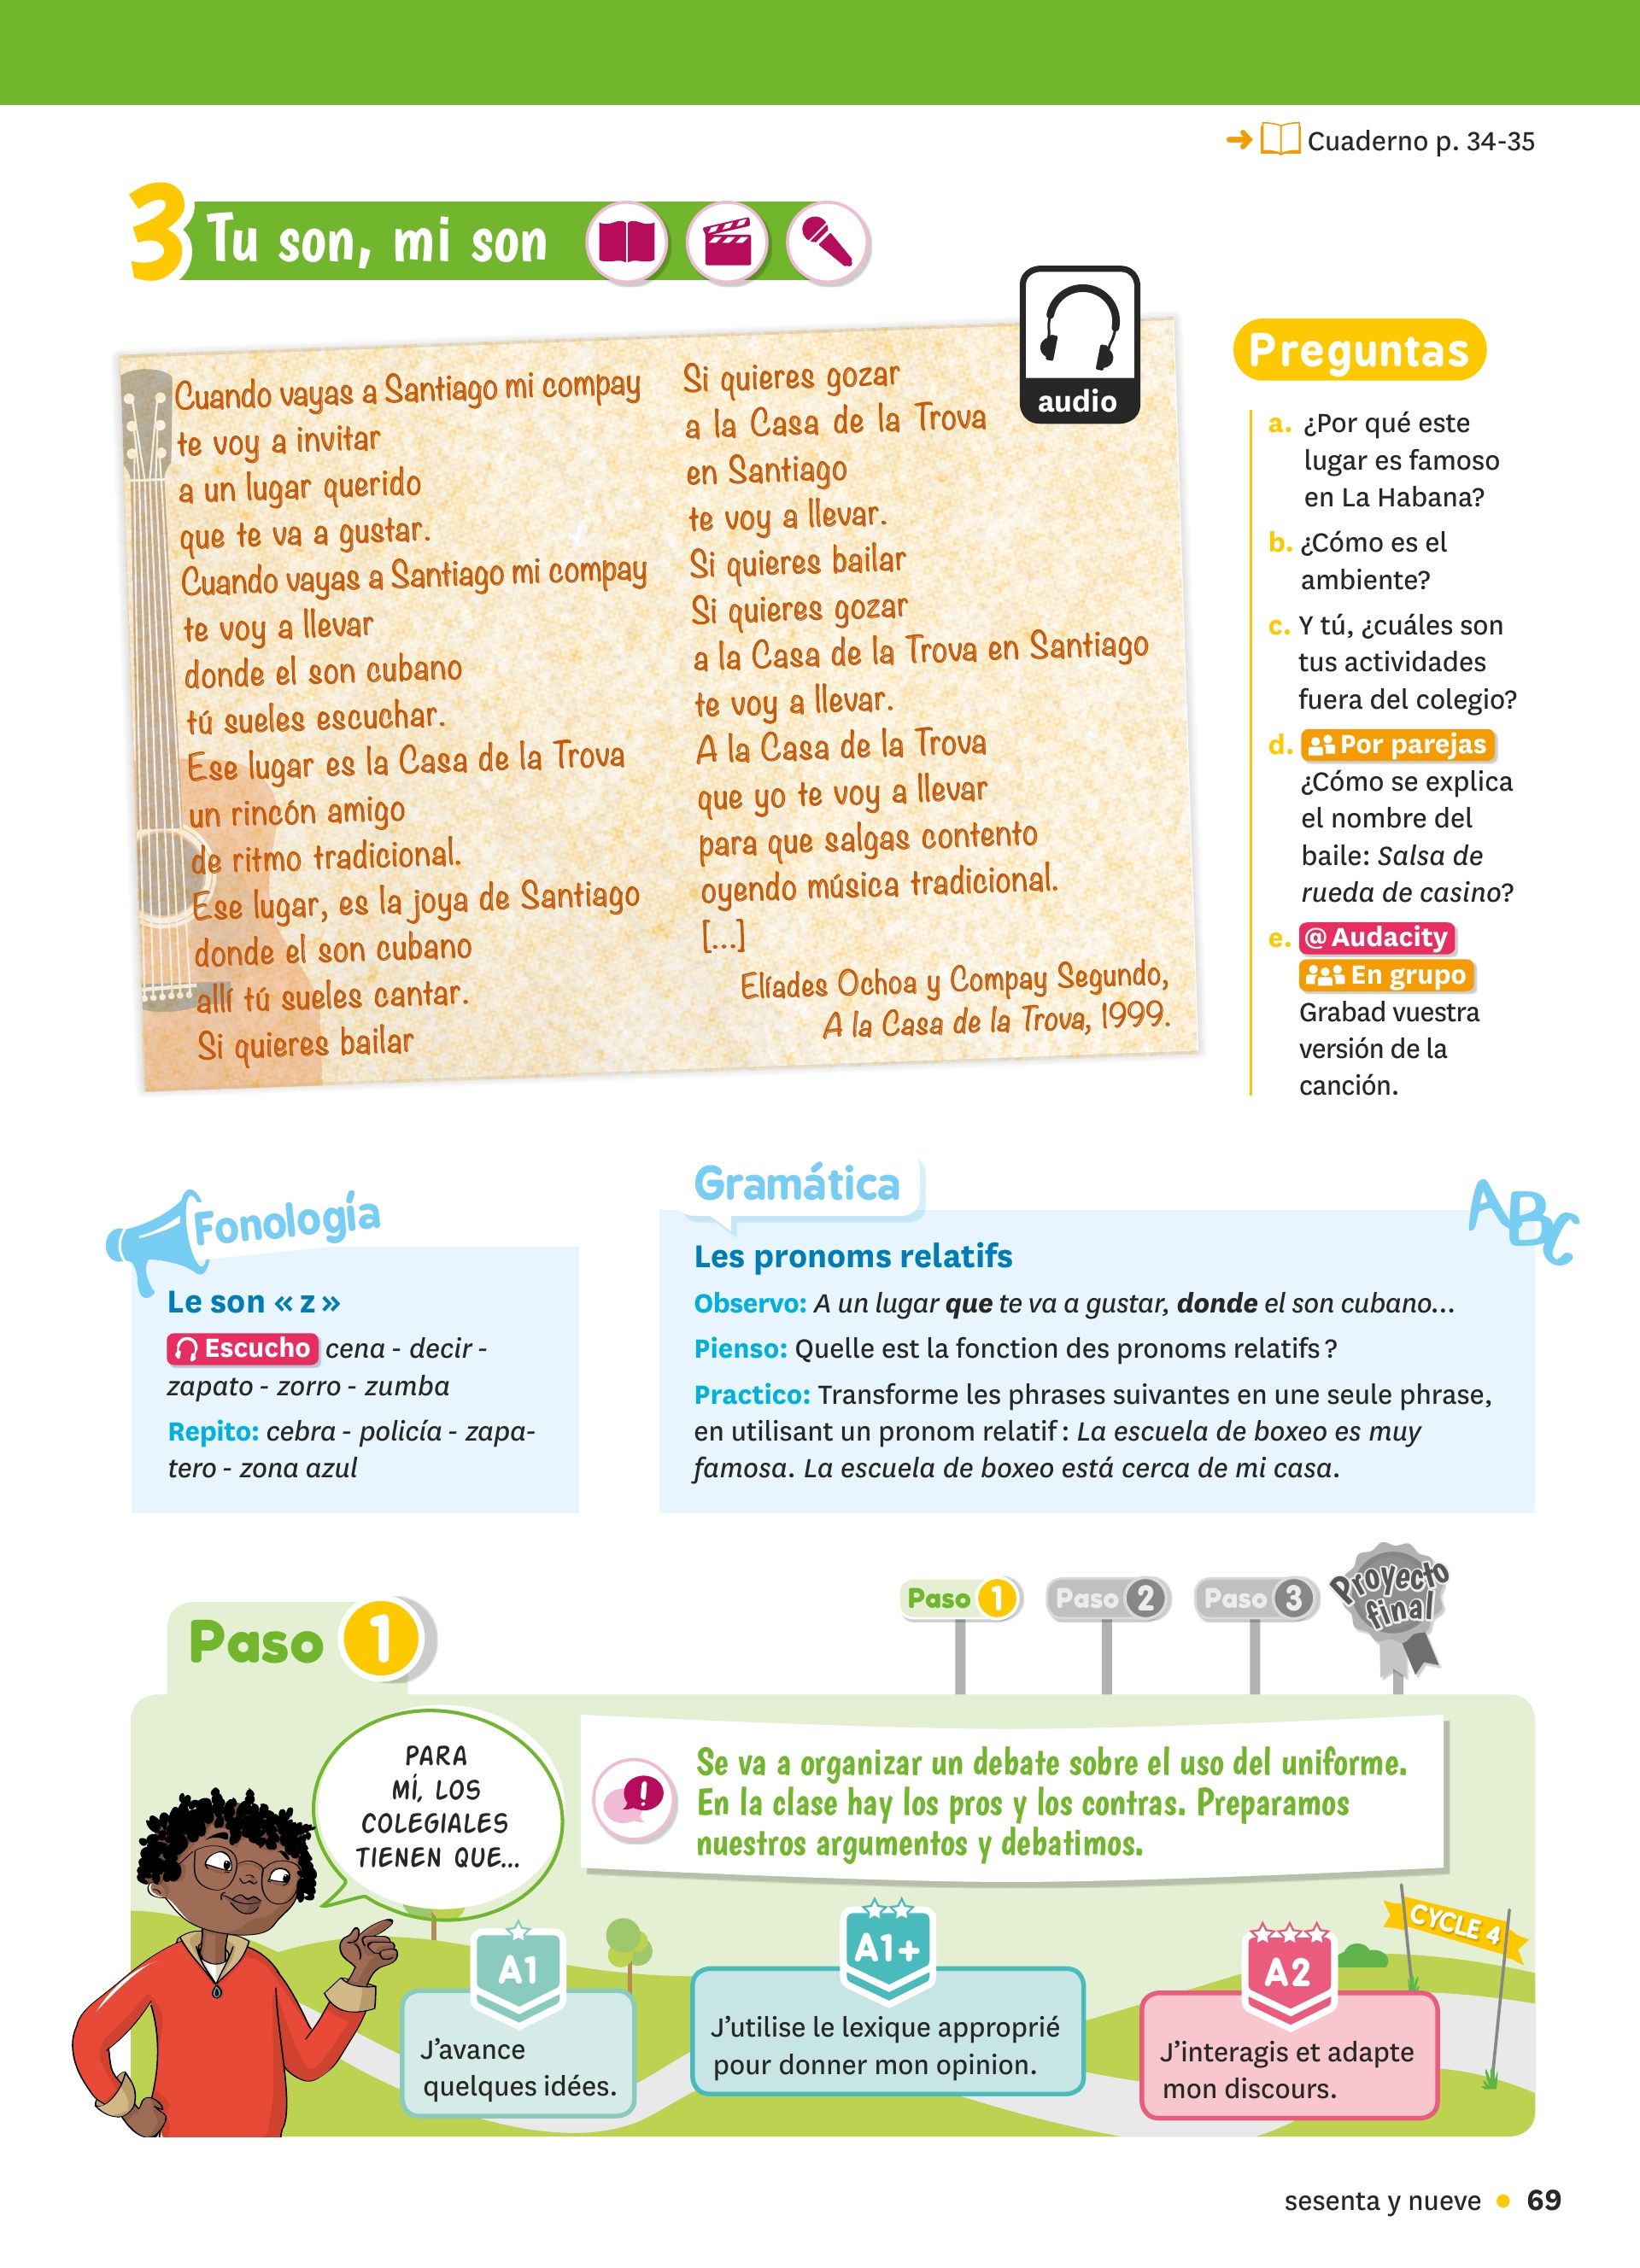 Cuaderno p. 34-35
3 Tu son, mi son
audio
Cuando vayas a Santiago mi compay
te voy a invitar
a un lugar querido
que te va a gustar.
Cuando vayas a Santiago mi compay
te voy a llevar
donde el son cubano
tú sueles escuchar.
Ese lugar es la Casa de la Trova
un rincón amigo
de ritmo tradicional.
Ese lugar, es la joya de Santiago
donde el son cubano
allí tú sueles cantar.
Si quieres bailar
Si quieres gozar
a la Casa de la Trova
en Santiago
te voy a llevar.
Si quieres bailar
Si quieres gozar
a la Casa de la Trova en Santiago
te voy a llevar.
A la Casa de la Trova
que yo te voy a llevar
para que salgas contento
oyendo música tradicional.
[...]
Elíades Ochoa y Compay Segundo,
A la Casa de la Trova, 1999.
Preguntas
a. ¿Por qué este
lugar es famoso
en La Habana?
b. ¿Cómo es el
ambiente?
c. Y tú, ¿cuáles son
tus actividades
fuera del colegio?
d. Por parejas
¿Cómo se explica
el nombre del
baile: Salsa de
rueda de casino?
e. @ Audacity
En grupo
Grabad vuestra
versión de la
canción.
Fonología
Le son « z »
Escucho cena - decir -
zapato - zorro - zumba
Repito: cebra - policía - zapa-
tero - zona azul
Gramática
ABC
Les pronoms relatifs
Observo: A un lugar que te va a gustar, donde el son cubano...
Pienso: Quelle est la fonction des pronoms relatifs ?
Practico: Transforme les phrases suivantes en une seule phrase,
en utilisant un pronom relatif : La escuela de boxeo es muy
famosa. La escuela de boxeo está cerca de mi casa.
Paso 1
Paso 1
Paso 2
Paso 3
Proyecto
final
PARA
MÍ, LOS
COLEGIALES
TIENEN QUE...
!
Se va a organizar un debate sobre el uso del uniforme.
En la clase hay los pros y los contras. Preparamos
nuestros argumentos y debatimos.
A1
J'avance
quelques idées.
A1+
J'utilise le lexique approprié
pour donner mon opinion.
A2
J'interagis et adapte
mon discours.
CYCLE 4
sesenta y nueve • 69